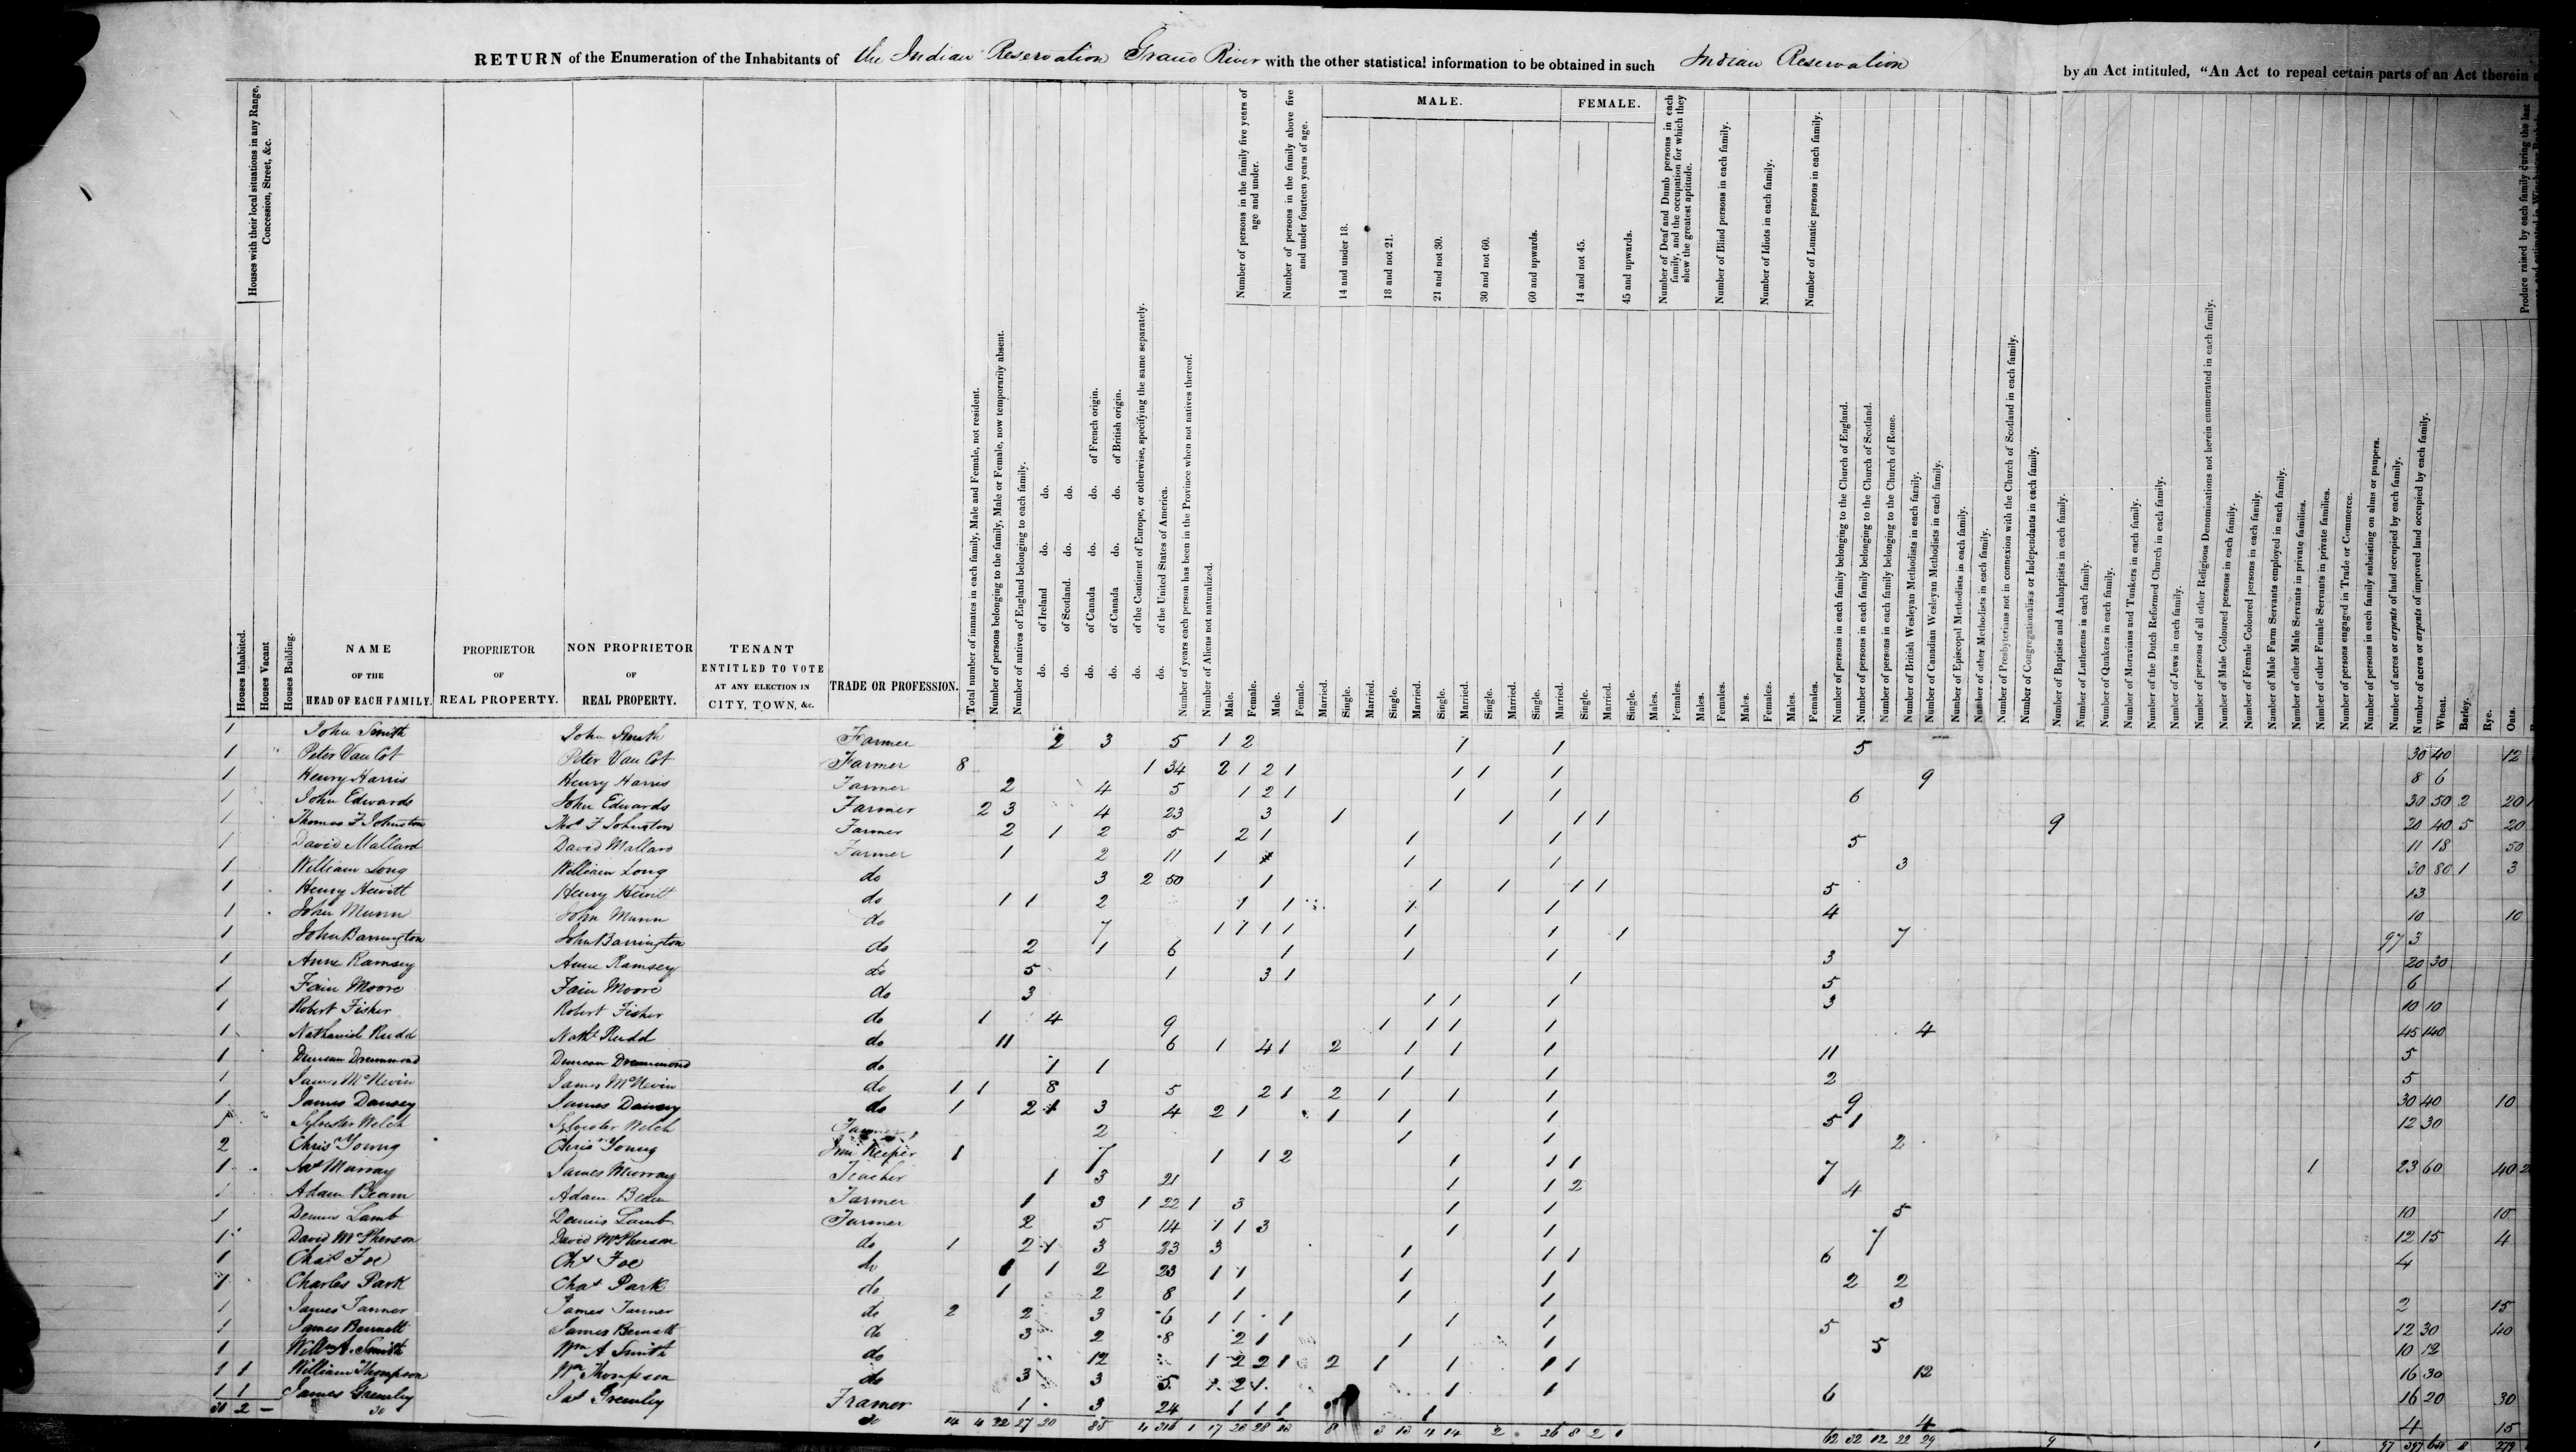 RETURN of the Enumeration of the Inhabitants of the Indian Reservation Grand River with the other statistical information to be obtained in such Indian Reservation by an Act intituled, "An Act to repeal certain parts of an Act therein
Houses with their local situations in any Range, Concession, Street, &c.
Houses Inhabited.
Houses Vacant
Houses Building.
NAME OF THE HEAD OF EACH FAMILY.
PROPRIETOR OF REAL PROPERTY.
NON PROPRIETOR OF REAL PROPERTY.
TENANT ENTITLED TO VOTE AT ANY ELECTION IN CITY, TOWN, &c.
TRADE OR PROFESSION.
Total number of inmates in each family, Male and Female, not resident.
Number of persons belonging to the family, Male or Female, now temporarily absent.
Number of natives of England belonging to each family.
do. of Ireland do. do.
do. of Scotland. do. do.
do. of Canada do. do. of French origin.
do. of Canada do. do. of British origin.
do. of the Continent of Europe, or otherwise, specifying the same separately.
do. of the United States of America.
Number of years each person has been in the Province when not natives thereof.
Number of Aliens not naturalized.
Number of persons in the family five years of age and under.
Male.
Female.
Number of persons in the family above five and under fourteen years of age.
Male.
Female.
MALE.
14 and under 18.
Married.
Single.
18 and not 21.
Married.
Single.
21 and not 30.
Married.
Single.
30 and not 60.
Married.
Single.
60 and upwards.
Married.
Single.
FEMALE.
14 and not 45.
Married.
Single.
45 and upwards.
Married.
Single.
Number of Deaf and Dumb persons in each family, and the occupation for which they shew the greatest aptitude.
Males.
Females.
Number of Blind persons in each family.
Males.
Females.
Number of Idiots in each family.
Males.
Females.
Number of Lunatic persons in each family.
Males.
Females.
Number of persons in each family belonging to the Church of England.
Number of persons in each family belonging to the Church of Scotland.
Number of persons in each family belonging to the Church of Rome.
Number of British Wesleyan Methodists in each family.
Number of Canadian Wesleyan Methodists in each family.
Number of Episcopal Methodists in each family.
Number of other Methodists in each family.
Number of Presbyterians not in connexion with the Church of Scotland in each family.
Number of Congregationalists or Independants in each family.
Number of Baptists and Anabaptists in each family.
Number of Lutherans in each family.
Number of Quakers in each family.
Number of Moravians and Tunkers in each family.
Number of the Dutch Reformed Church in each family.
Number of Jews in each family.
Number of persons of all other Religious Denominations not herein enumerated in each family.
Number of Male Coloured persons in each family.
Number of Female Coloured persons in each family.
Number of Male Farm Servants employed in each family.
Number of other Male Servants in private families.
Number of other Female Servants in private families.
Number of persons engaged in Trade or Commerce.
Number of persons in each family subsisting on alms or paupers.
Number of acres or arpents of land occupied by each family.
Number of acres or arpents of improved land occupied by each family.
Produce raised by each family during the last
Wheat.
Barley.
Rye.
Oats.
1 John Smith John Smith Farmer 2 3 5 1 2 1 1 5 30 40 12
1 Peter Van Cot Peter Van Cot Farmer 8 1 34 2 1 2 1 1 1 1 9 8 6
1 Henry Harris Henry Harris Farmer 2 4 5 1 2 1 1 1 6 30 50 2 20
1 John Edwards John Edwards Farmer 2 3 4 23 3 1 1 1 1 9 20 40 5 20
1 Thomas F Johnston Thos F Johnston Farmer 2 1 2 5 2 1 1 1 5 11 18 50
1 David Mallard David Mallard Farmer 1 2 11 1 1 1 3 30 80 1 3
1 William Long William Long do 3 2 50 1 1 1 1 1 5 13
1 Henry Hewitt Henry Hewitt do 1 1 2 1 1 1 1 4 10 10
1 John Munn John Munn do 7 1 1 1 1 1 1 1 7 97 3
1 John Barrington John Barrington do 2 1 6 1 1 1 3 20 30
1 Anne Ramsey Anne Ramsey do 5 1 3 1 1 5 6
1 Fain Moore Fain Moore do 3 1 1 1 3 10 10
1 Robert Fisher Robert Fisher do 1 4 9 1 1 1 1 4 45 140
1 Nathaniel Rudd Nathl Rudd do 11 6 1 4 1 2 1 1 1 11 5
1 Duncan Drummond Duncan Drummond do 1 1 1 1 2 5
1 James McNevin James McNevin do 1 1 8 5 2 1 2 1 1 1 9 30 40 10
1 James Dansey James Dansey do 1 2 1 3 4 2 1 1 1 1 5 1 12 30
1 Sylvester Welch Sylvester Welch Farmer 2 1 1 2
2 Chrisr Young Chrisr Young Inn Keeper 1 7 1 1 2 1 1 1 7 1 23 60 40 2
1 Jas Murray James Murray Teacher 1 3 21 1 1 2 4
1 Adam Beam Adam Beam Farmer 1 3 1 22 1 3 1 1 5 10 10
1 Dennis Lamb Dennis Lamb Farmer 2 5 14 1 1 3 1 1 7 12 15 4
1 David McPherson David McPherson do 1 2 1 3 23 3 1 1 1 6 4
1 Chas Foe Chs Foe do 1 1 2 23 1 1 1 1 2 2
1 Charles Park Chas Park do 1 2 8 1 1 1 3 2 15
1 James Tanner James Tanner do 2 2 3 6 1 1 1 1 1 5 12 30 40
1 James Bennett James Bennett do 3 2 8 2 1 1 1 5 10 12
1 Willm A. Smith Wm A Smith do 12 1 2 2 1 2 1 1 1 1 12 16 30
1 1 William Thompson Wm Thompson do 3 3 5 1 2 1 1 1 6 16 20 30
1 1 James Gremley Jas Gremley Framer 1 3 24 1 1 1 1 4 4 15
30 2 – 30 30 14 4 32 27 20 85 4 316 1 17 28 28 13 8 3 13 4 14 2 26 8 2 1 62 32 12 22 29 9 1 97 397 279